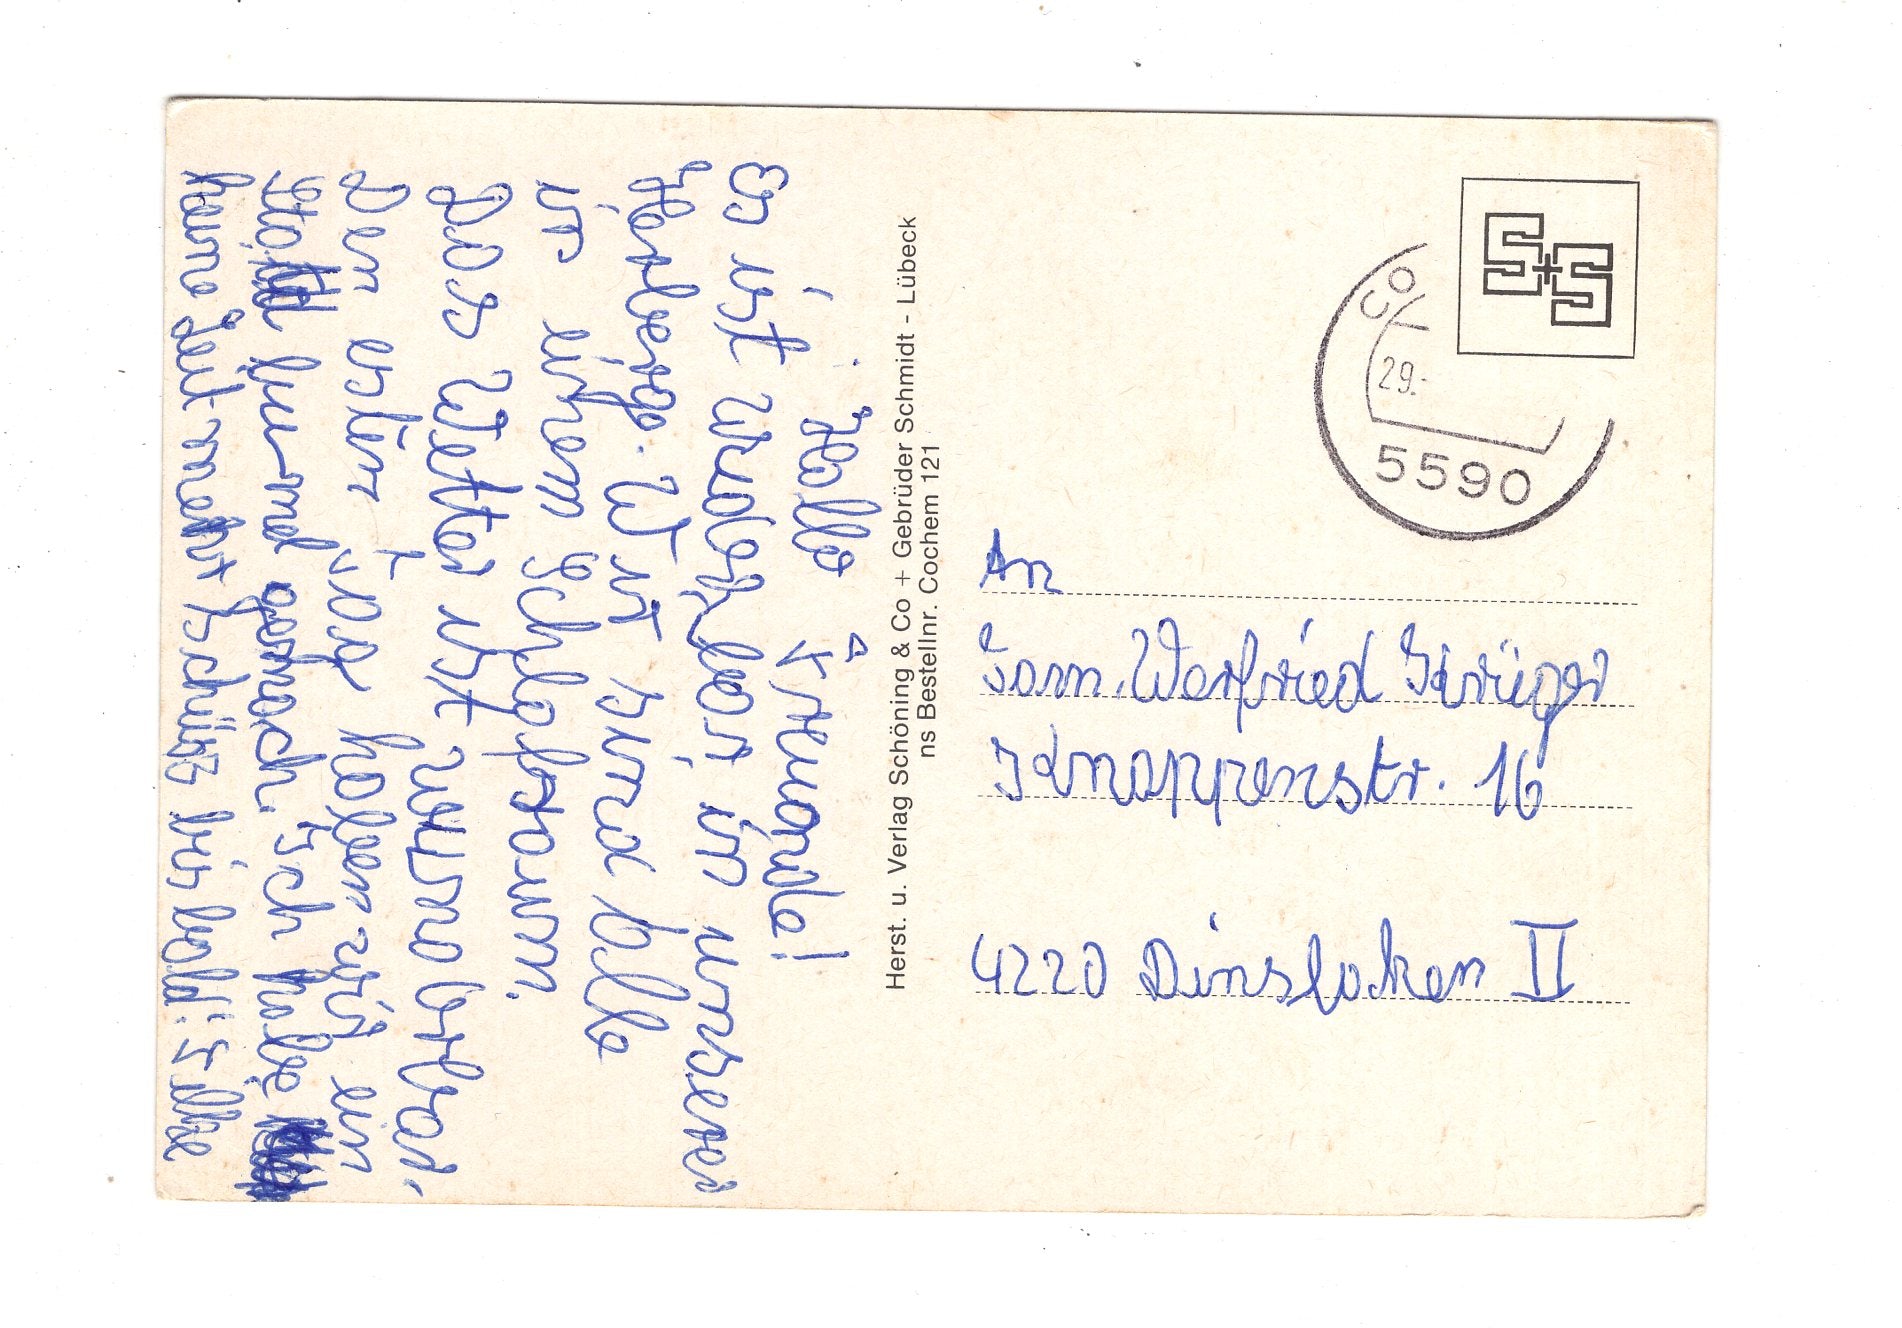 Hallo Freunde!
Es ist wunderbar in unserer
Herberge. Wir sind alle
in einem Schlafraum.
Das Wetter ist wunderbar.
Den ersten Tag haben wir ein
gemach. Ich habe
keine Zeit mehr Tschüss bis bald: Silke
Herst. u. Verlag Schöning & Co + Gebrüder Schmidt - Lübeck
ns Bestellnr. Cochem 121
S+S
CO
29.-
5590
An
Fam. Werfried Krüger
Knappenstr. 16
4220 Dinslaken II